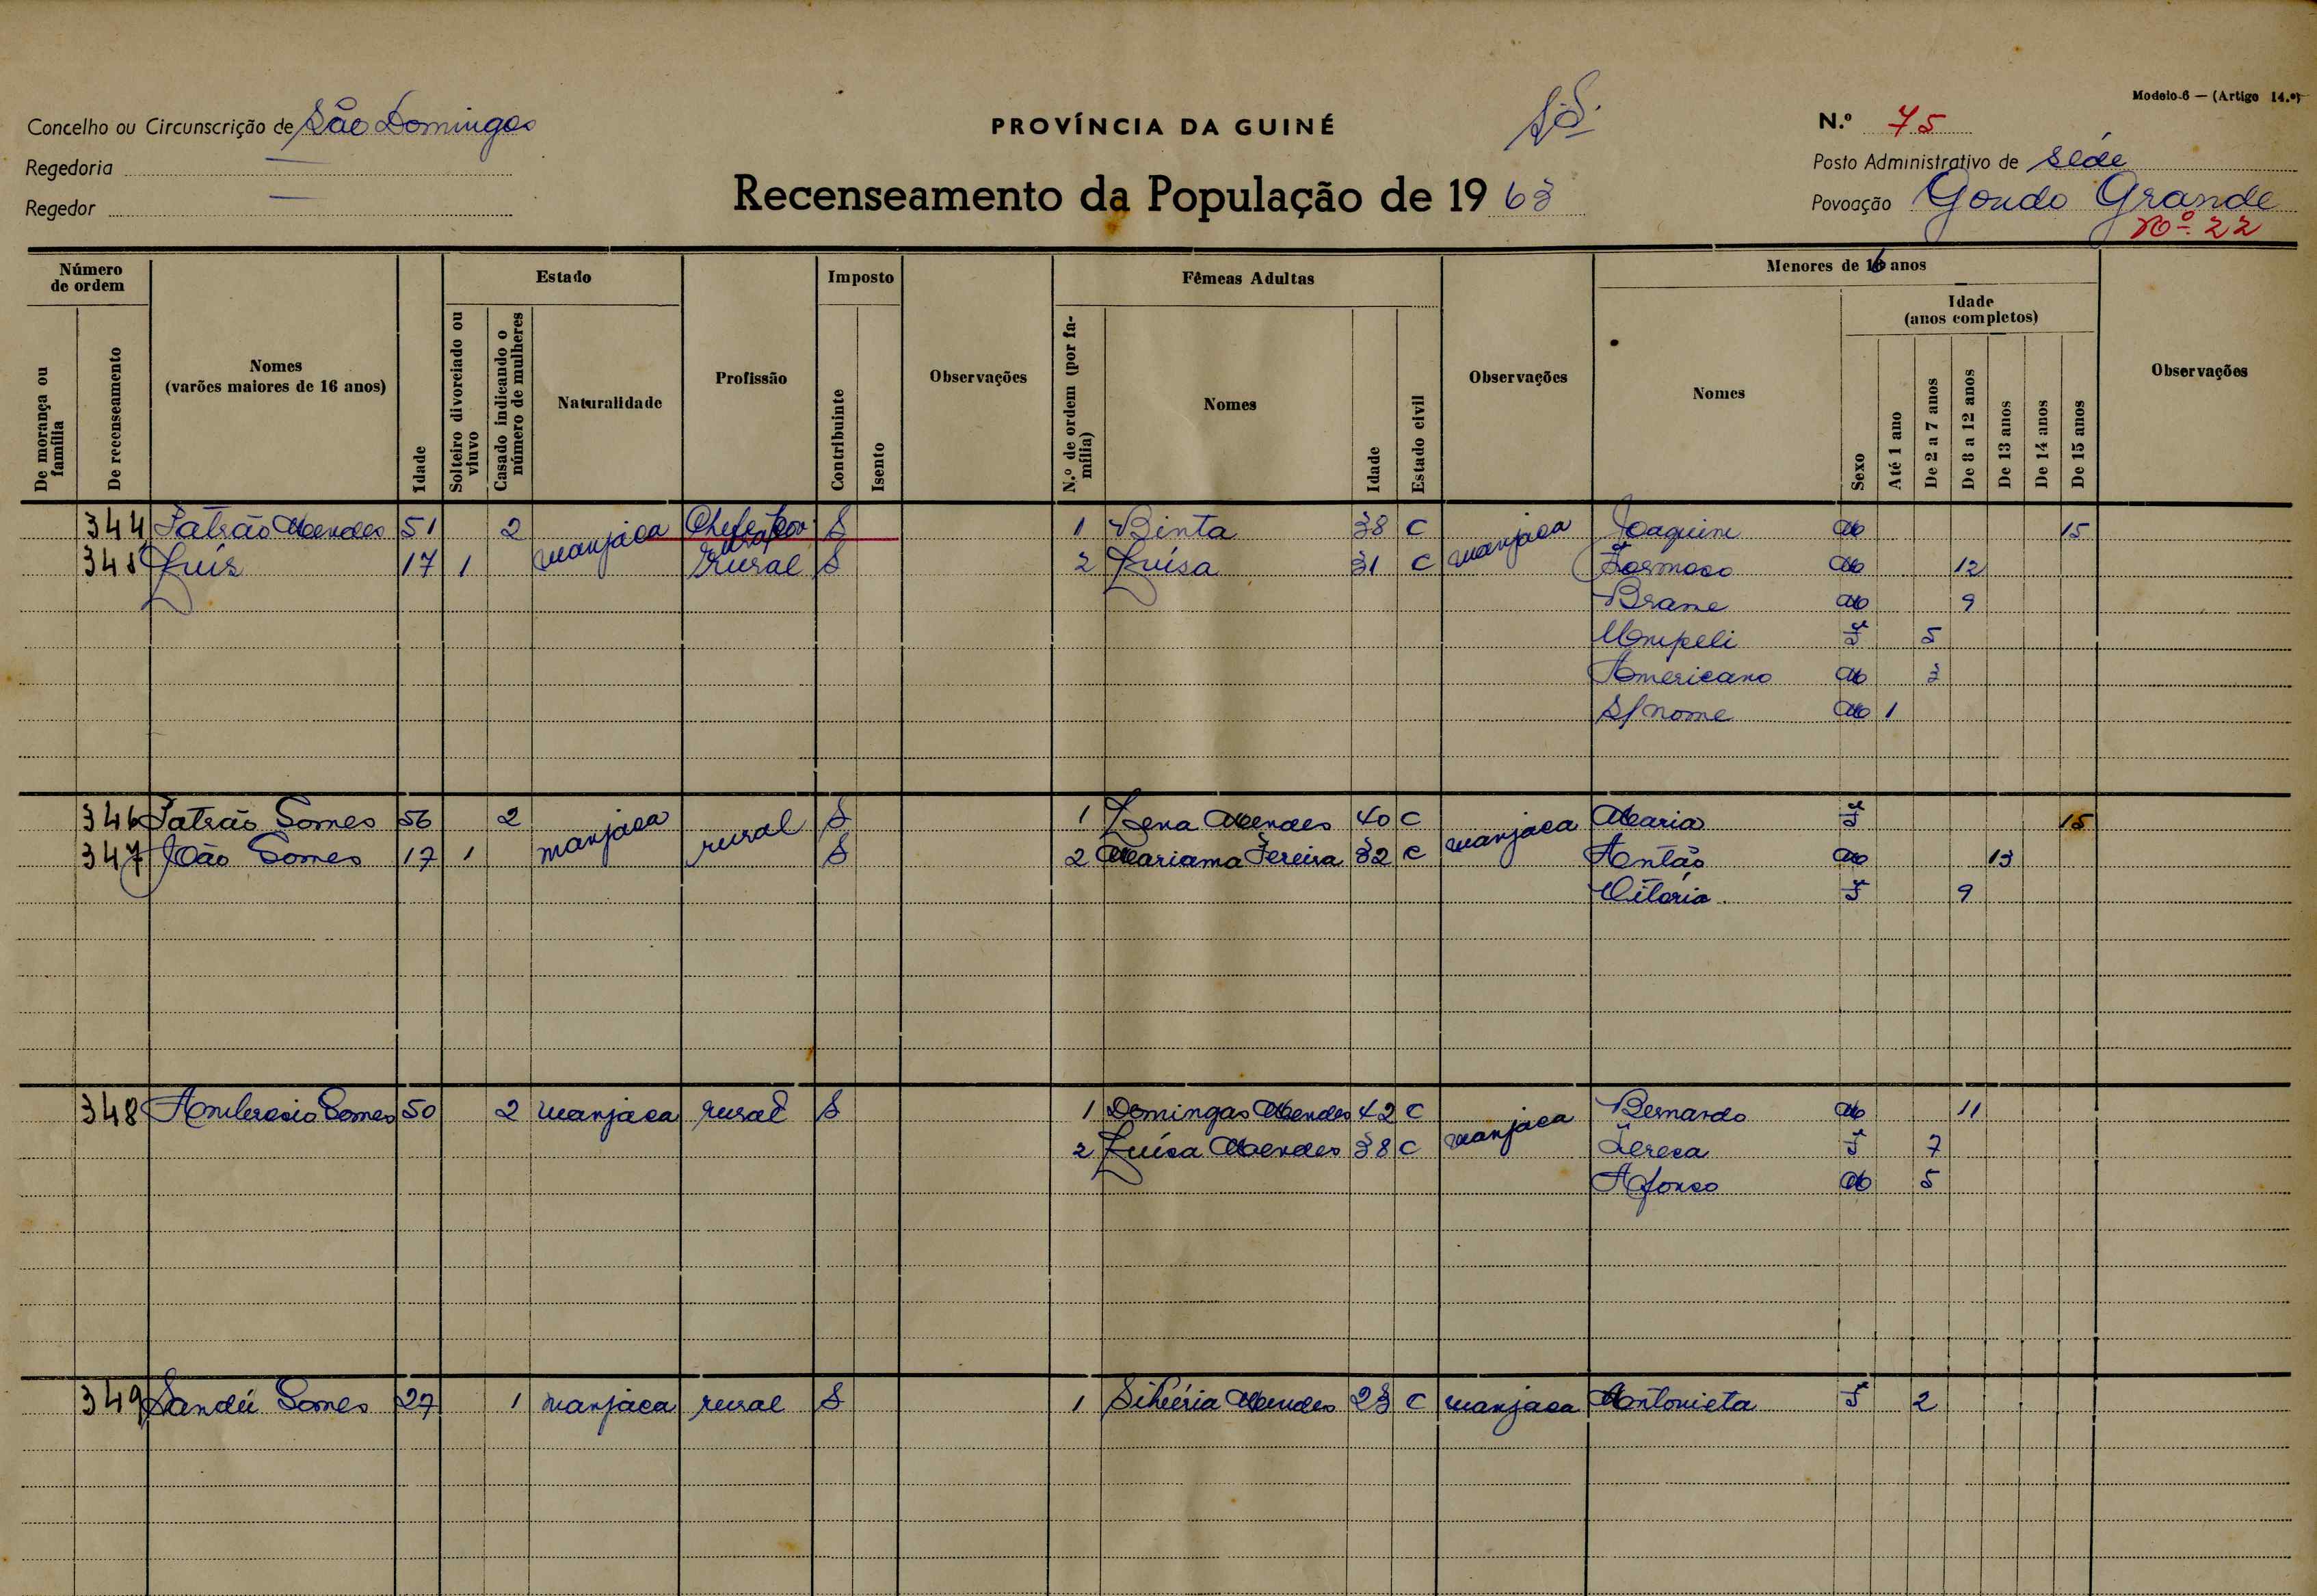 Modelo 6 — (Artigo 14.º)
Concelho ou Circunscrição de São Domingos
PROVÍNCIA DA GUINÉ
N.º 75
Regedoria —
Posto Administrativo de Séde
Regedor —
Recenseamento da População de 19 63
Povoação Goudo Grande
Nº 22
Número de ordem
Estado
Imposto
Fêmeas Adultas
Menores de 16 anos
Idade (anos completos)
De morança ou família
De recenseamento
Nomes (varões maiores de 16 anos)
Idade
Solteiro divorciado ou viuvo
Casado indicando o número de mulheres
Naturalidade
Profissão
Contribuinte
Isento
Observações
N.º de ordem (por família)
Nomes
Idade
Estado civil
Observações
Nomes
Sexo
Até 1 ano
De 2 a 7 anos
De 8 a 12 anos
De 13 anos
De 14 anos
De 15 anos
Observações
344 Patrão Mendes 51 2 manjaca Chefe Pov. S 1 Binta 38 C manjaca Joaquim M 15
345 Luís 17 1 rural S 2 Luísa 31 C Formoso M 12
Brame M 9
Umpeli F 5
Americano M 3
S/nome M 1
346 Patrão Gomes 56 2 manjaca rural S 1 Lena Mendes 40 C manjaca Maria F 15
347 João Gomes 17 1 S 2 Mariama Pereira 32 C Antão M 13
Vitória F 9
348 Ambrosio Gomes 50 2 manjaca rural S 1 Domingas Mendes 42 C manjaca Bernardo M 11
2 Luísa Mendes 38 C Teresa F 7
Afonso M 5
349 Sandú Gomes 27 1 manjaca rural S 1 Mendes 23 C manjaca Antonieta F 2